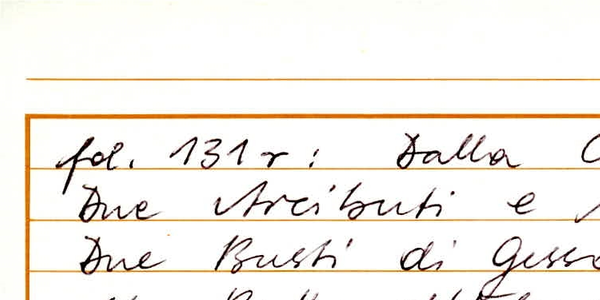 fol. 131r: Dalla
Due Atributi e
Due Busti di Gesso